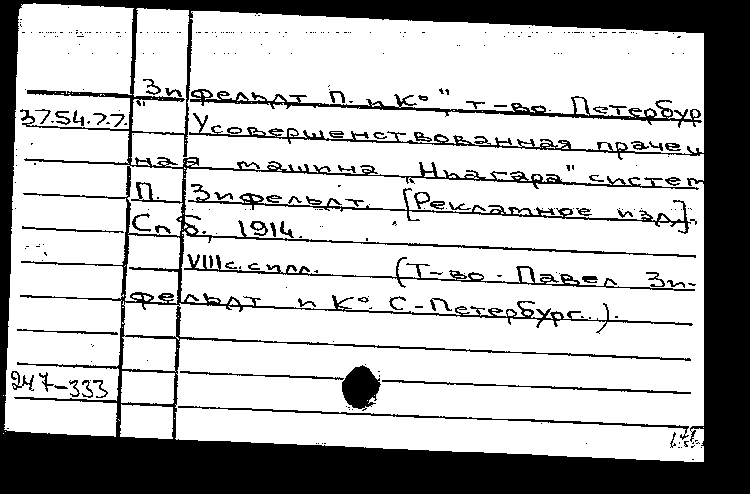 "Зифельдт П. и К°", т-во. Петербур
37.54.77. Усовершенствованная прачеш
ная машина "Ниагара" систем
П. Зифельдт. [Рекламное изд.].
Спб., 1914.
VIII с. с илл. (Т-во. Павел Зи-
фельдт и К°. С-Петербург.).
247-333